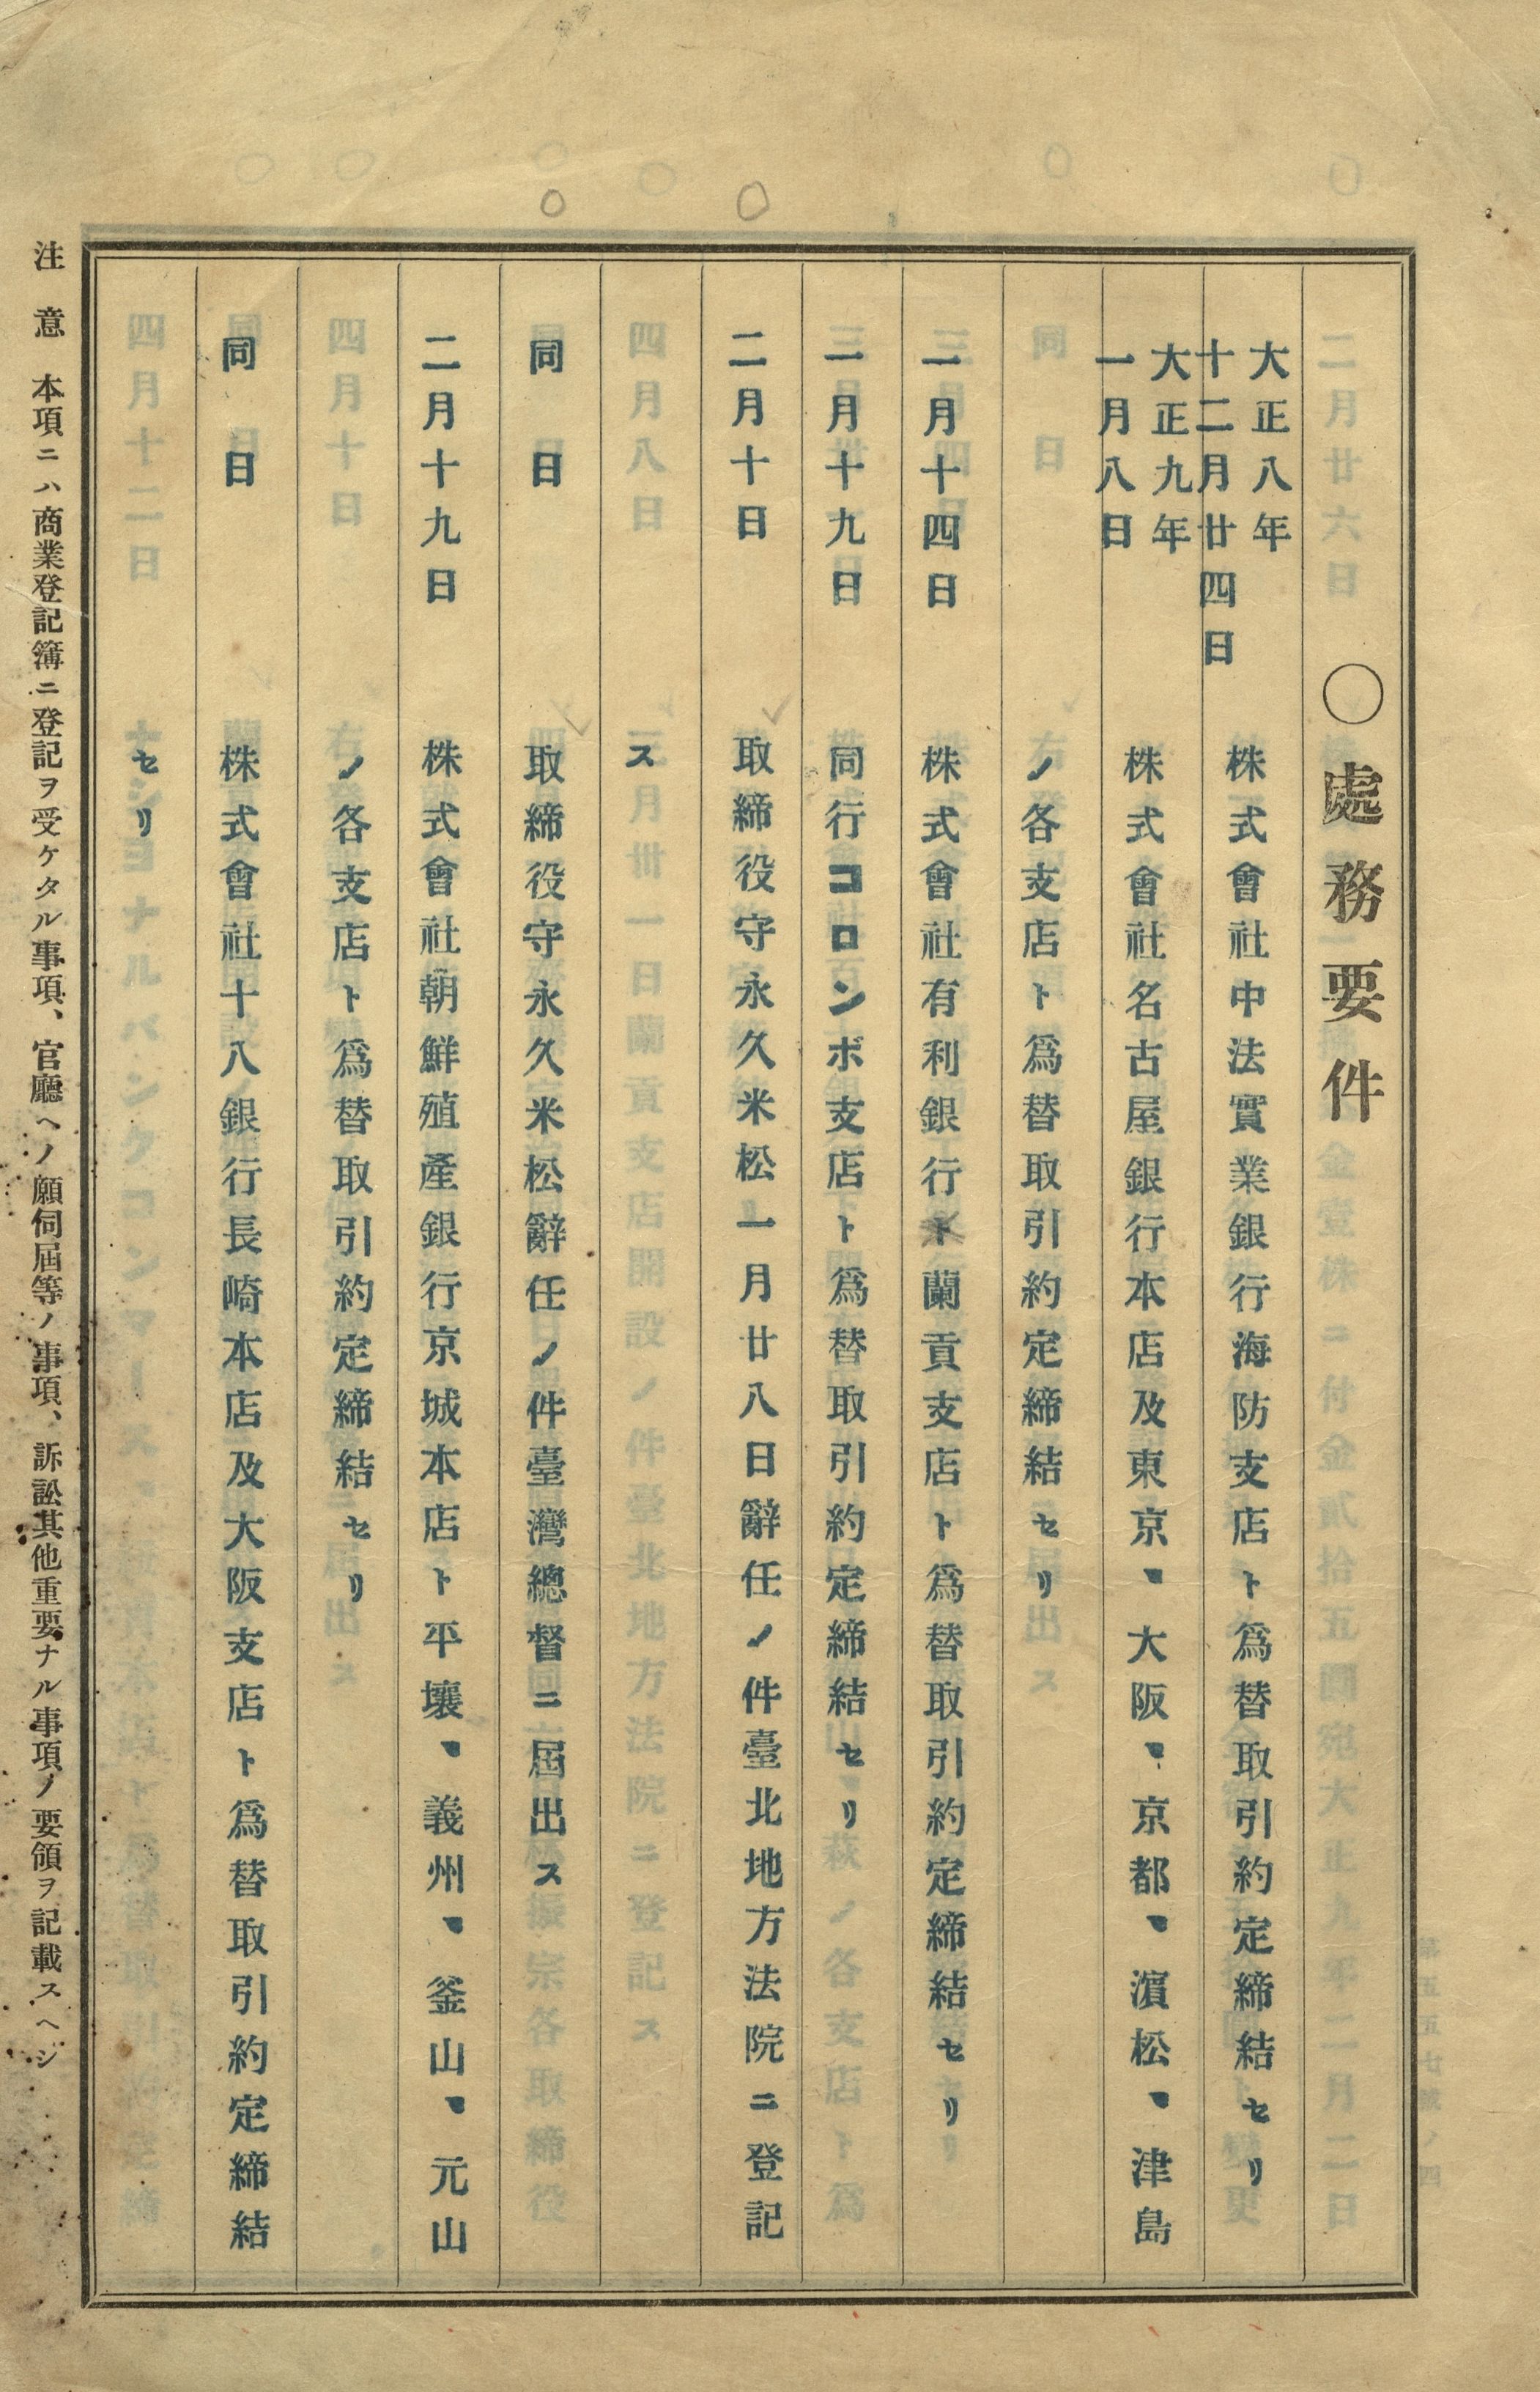 〇處務要件
大正八年十二月廿四日 株式會社中法實業銀行海防支店ト爲替取引約定締結セリ
大正九年一月八日 株式會社名古屋銀行本店及東京、大阪、京都、濱松、津島
ノ各支店ト爲替取引約定締結セリ
一月十四日 株式會社有利銀行蘭貢支店ト爲替取引約定締結セリ
一月十九日 同行コロンボ支店ト爲替取引約定締結セリ
二月十日 取締役守永久米松一月廿八日辭任ノ件臺北地方法院ニ登記
ス
同日 取締役守永久米松辭任ノ件臺灣總督ニ屆出ス
二月十九日 株式會社朝鮮殖產銀行京城本店ト平壤、義州、釜山、元山
ノ各支店ト爲替取引約定締結セリ
同日 株式會社十八銀行長崎本店及大阪支店ト爲替取引約定締結
セリ
注意 本項ニハ商業登記簿ニ登記ヲ受ケタル事項、官廳ヘノ願伺屆等ノ事項、訴訟其他重要ナル事項ノ要領ヲ記載スヘシ